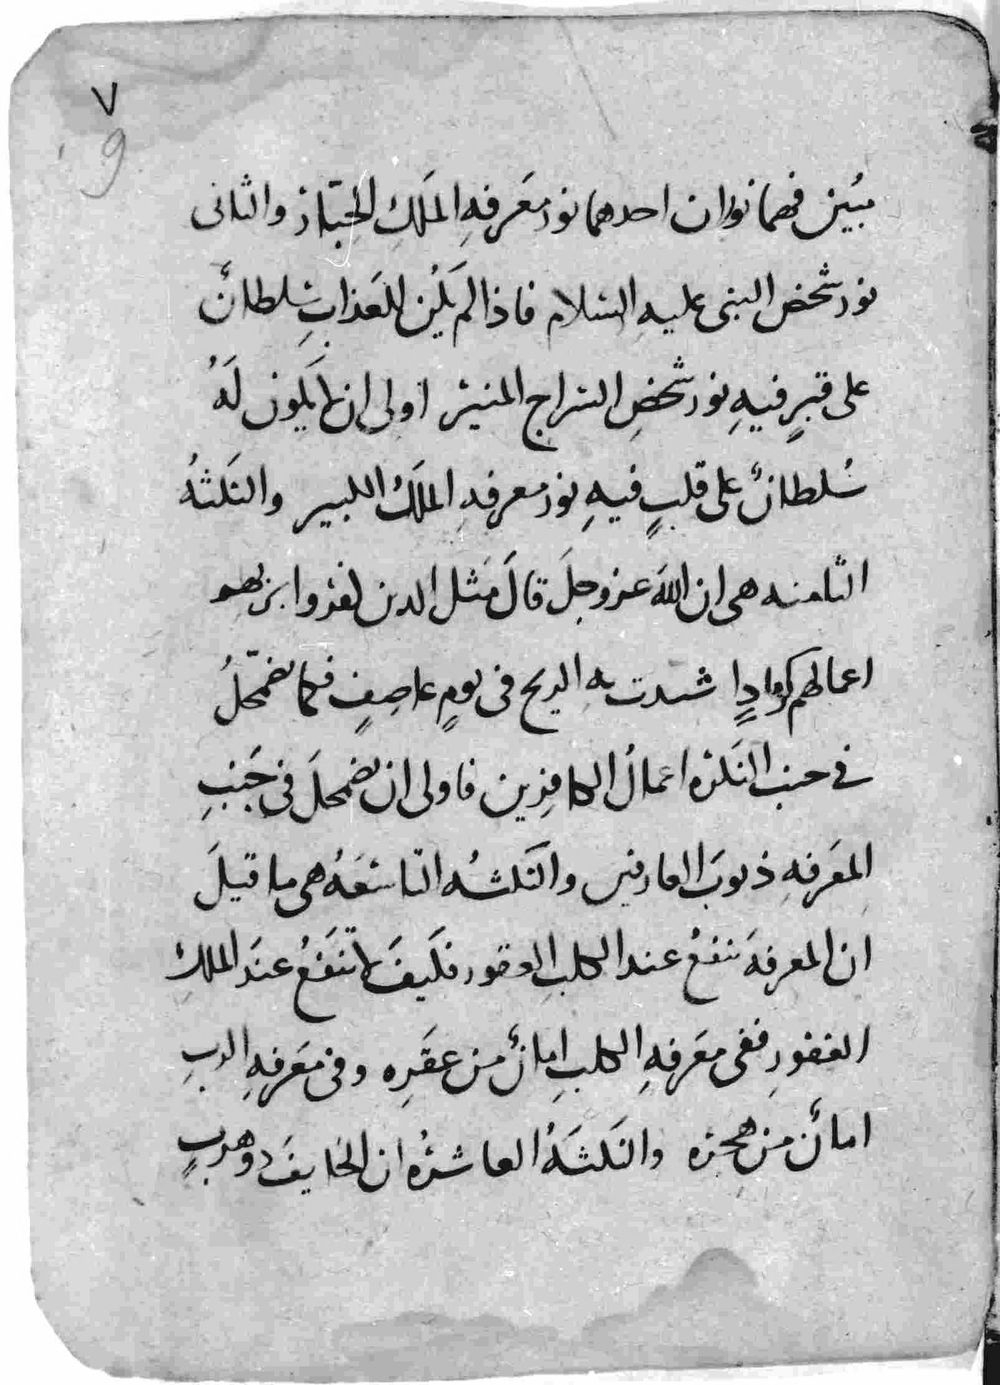 ٧
9
مبين فهما نوران احدهما نور معَرفهِ الملَكِ الجبّار والثانى
نور شخص النبى عليهِ السلام فاذا لم يَكُن للعَذابِ سُلطانٌ
على قبرٍ فيهِ نور شخصِ السراج المنير اولى ان لا يكون لَهُ
سُلطانٌ على قلبٍ فيهِ نور معرفهِ الملَكُ الكبير والنكَتهُ
الثامنه هى ان اللهَ عز وجلَ قالَ مَثل الدين كفروا بربهم
اعمالهم كرمادٍ اشتدت به الريح فى يومٍ عاصِفٍ فكما تضمّحلُ
فى جنب النَكره اعمالُ الكافرين فاولى ان تضمحلَ فى جَنبِ
المعَرفهِ ذنوبَ العارفين والنَكتهُ التاسَعهُ هى ما قيلَ
ان المعرفهَ تنفعُ عند الكلبِ العقور فكَيفَ لا تنَفعُ عندَ الملك
الغفورِ ففى معَرفهِ الكلبِ امانٌ من عقَرِه وفى معَرفهِ الربِ
امانٌ من هجره والنَكتَهُ العاشرهُ ان الخايفَ ذو هربٍ